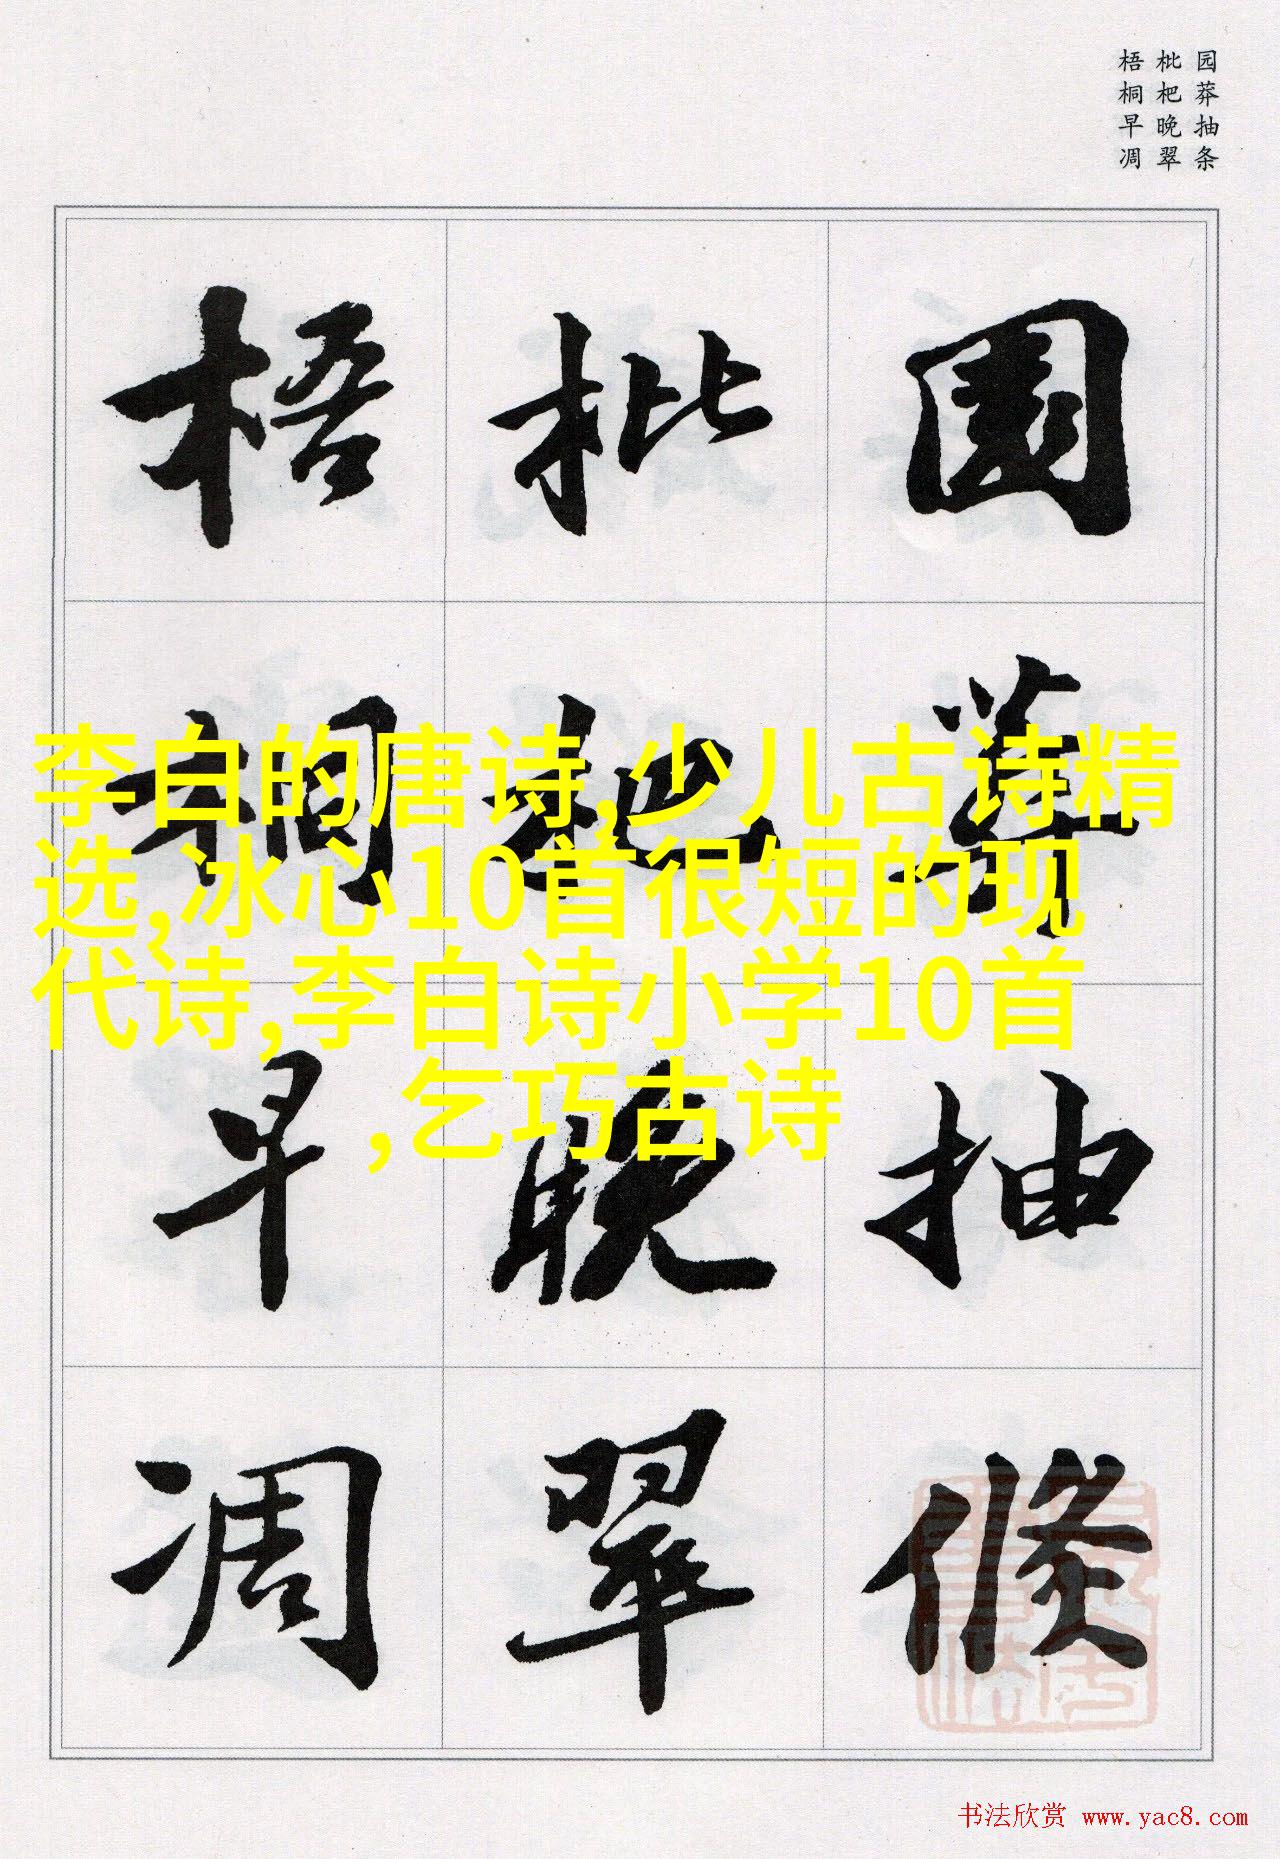 园莽抽条
枇杷晚翠
梧桐早凋
園莽抽條
枇杷晚翠
梧桐早凋
李白的唐诗,少儿古诗精
选,冰心10首很短的现
代诗,李白诗小学10首
,乞巧古诗
书法欣赏 www.yac8.com